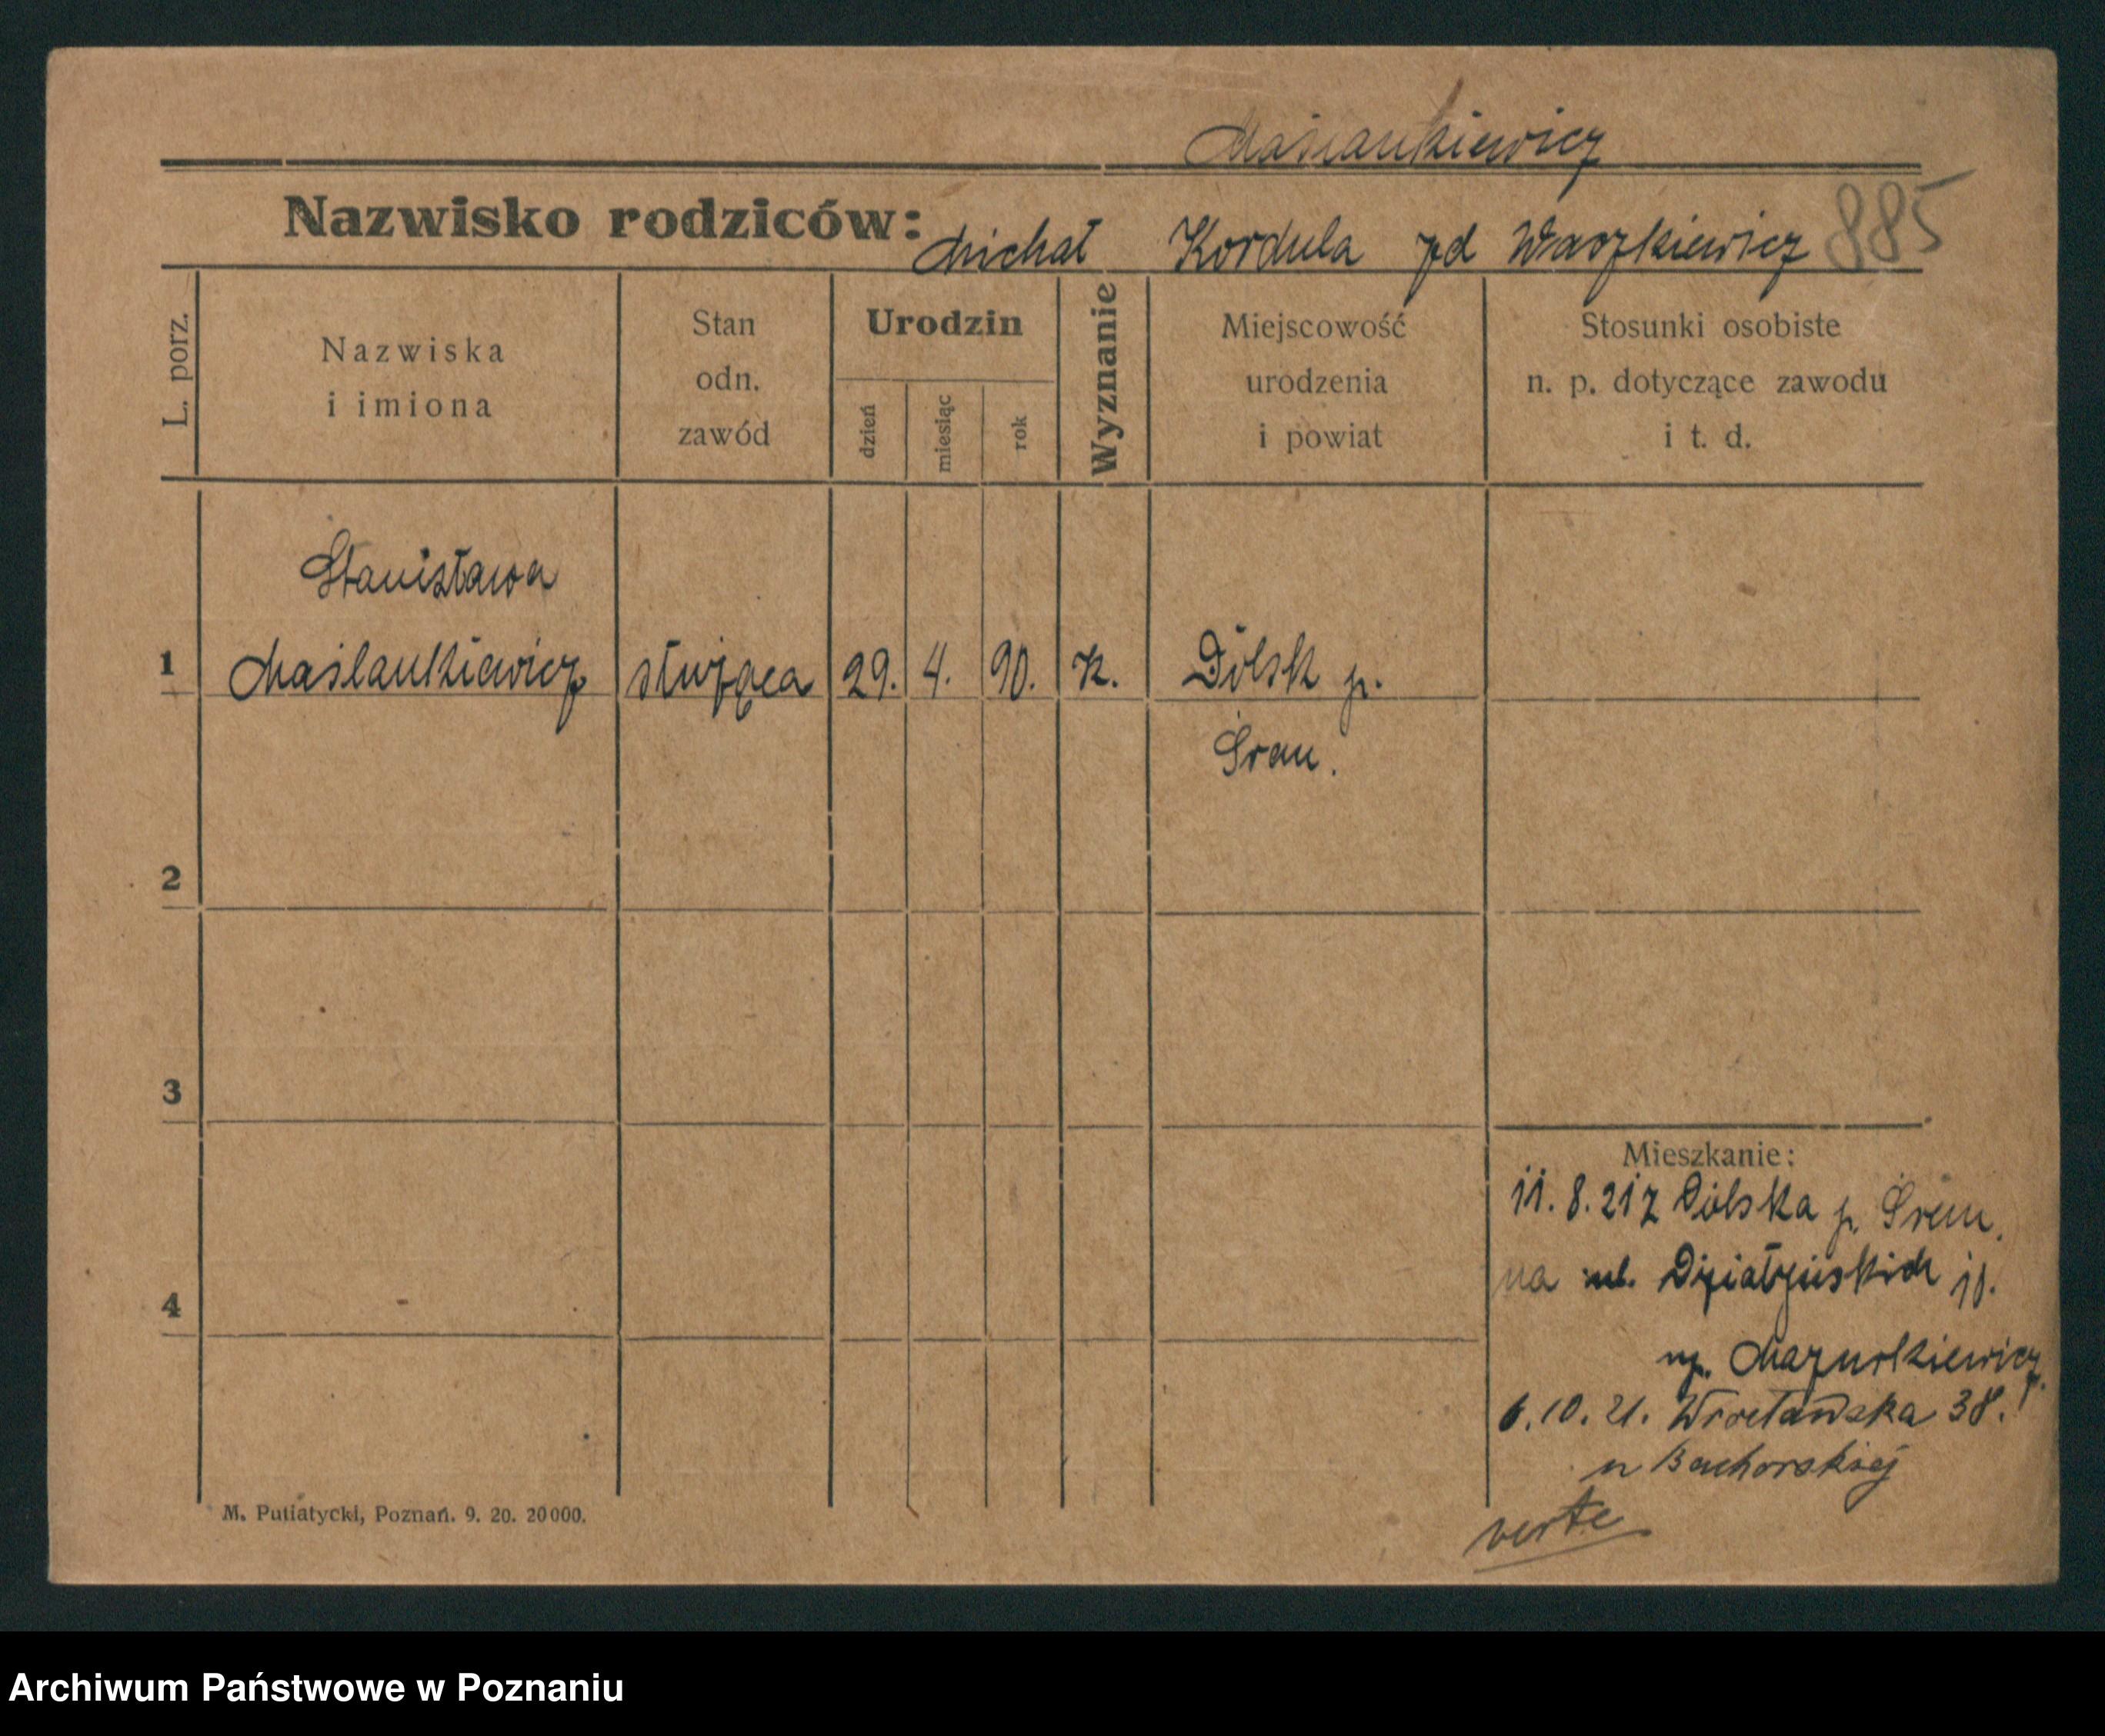 Maślankiewicz
Nazwisko rodziców: Michał Kordula zd Waszkiewicz 885
L. porz.
Nazwiska
i imiona
Stan
odn.
zawód
Urodzin
dzień
miesiąc
rok
Wyznanie
Miejscowość
urodzenia
i powiat
Stosunki osobiste
n. p. dotyczące zawodu
i t. d.
Stanisława
1 Maślankiewicz służąca 29. 4. 90. K. Dolsk p.
Śrem.
2
3
4
Mieszkanie:
11. 8. 21 z Dolska p. Śrem.
na ul. Działyńskich 10.
Mazurkiewicz.
6. 10. 21. Wrocławska 38.
u Bachorskiej
verte
M. Putiatycki, Poznań. 9. 20. 20000.
Archiwum Państwowe w Poznaniu